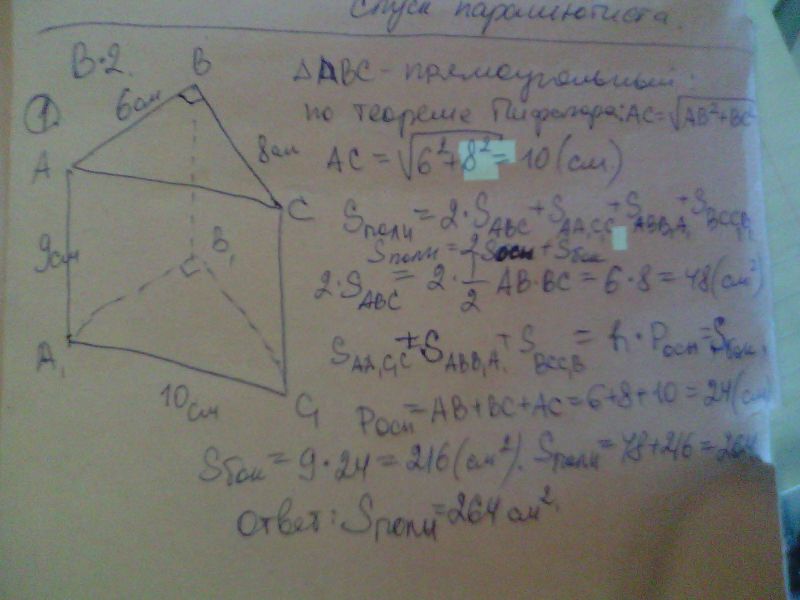 Спуск парашютиста.
В-2.
①
B
6см
8см
A
C
9см
B₁
A₁
10см
C₁
ΔABC - прямоугольный.
по теореме Пифагора: AC = √AB²+BC²
AC = √6²+8² = 10 (см)
Sполн = 2·S_ABC + S_AA₁C₁C + S_ABB₁A₁ + S_BCC₁B₁
Sполн = 2Sосн + Sбок
2·S_ABC = 2·1/2 AB·BC = 6·8 = 48 (см²)
S_AA₁C₁C + S_ABB₁A₁ + S_BCC₁B = h·Pосн = Sбок.
Pосн = AB+BC+AC = 6+8+10 = 24 (см
Sбок = 9·24 = 216 (см²). Sполн = 48+216 = 264
Ответ: Sполн = 264 см².